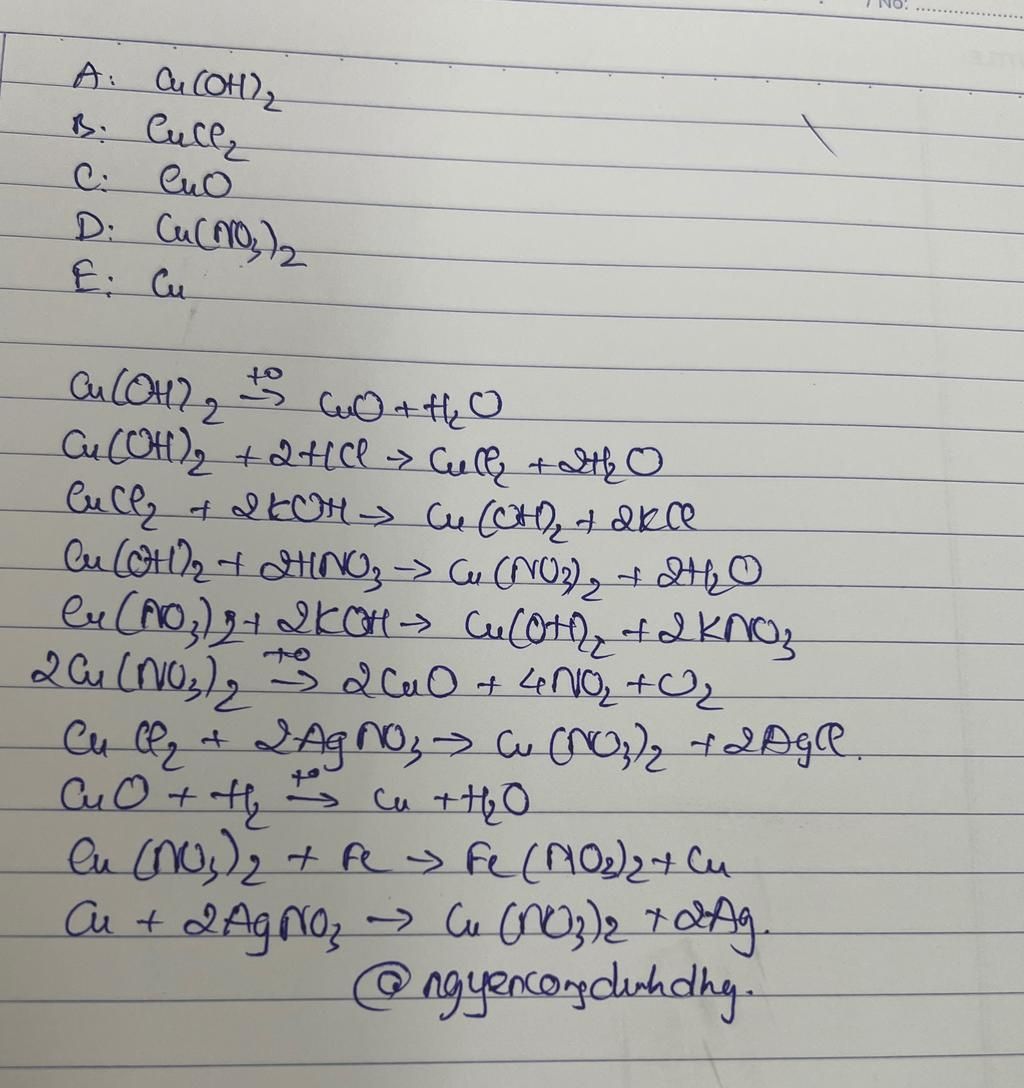 / No: ........................
A: Cu(OH)₂
B: CuCl₂
C: CuO
D: Cu(NO₃)₂
E: Cu
Cu(OH)₂ →^{t°} CuO + H₂O
Cu(OH)₂ + 2HCl → CuCl₂ + 2H₂O
CuCl₂ + 2KOH → Cu(OH)₂ + 2KCl
Cu(OH)₂ + 2HNO₃ → Cu(NO₃)₂ + 2H₂O
Cu(NO₃)₂ + 2KOH → Cu(OH)₂ + 2KNO₃
2Cu(NO₃)₂ →^{t°} 2CuO + 4NO₂ + O₂
CuCl₂ + 2AgNO₃ → Cu(NO₃)₂ + 2AgCl.
CuO + H₂ →^{t°} Cu + H₂O
Cu(NO₃)₂ + Fe → Fe(NO₃)₂ + Cu
Cu + 2AgNO₃ → Cu(NO₃)₂ + 2Ag.